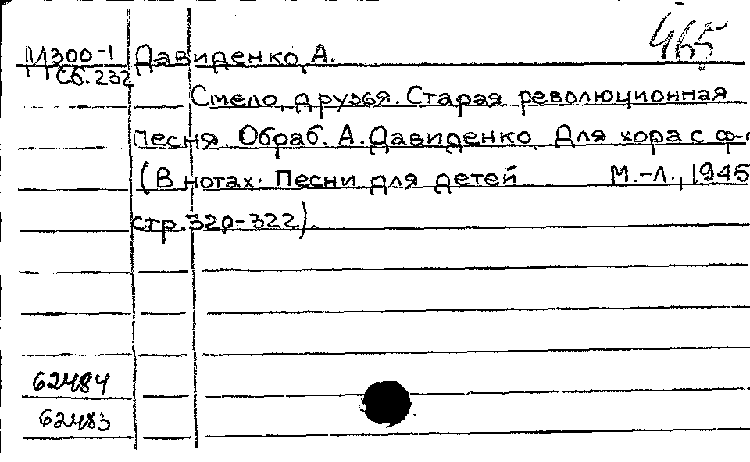 465
М300-1 Давиденко, А.
Сб. 232
Смело, друзья. Старая революционная
песня Обраб. А. Давиденко Для хора с ф-
(В нотах: Песни для детей М.-Л., 1945
стр. 320-322).
62484
62483